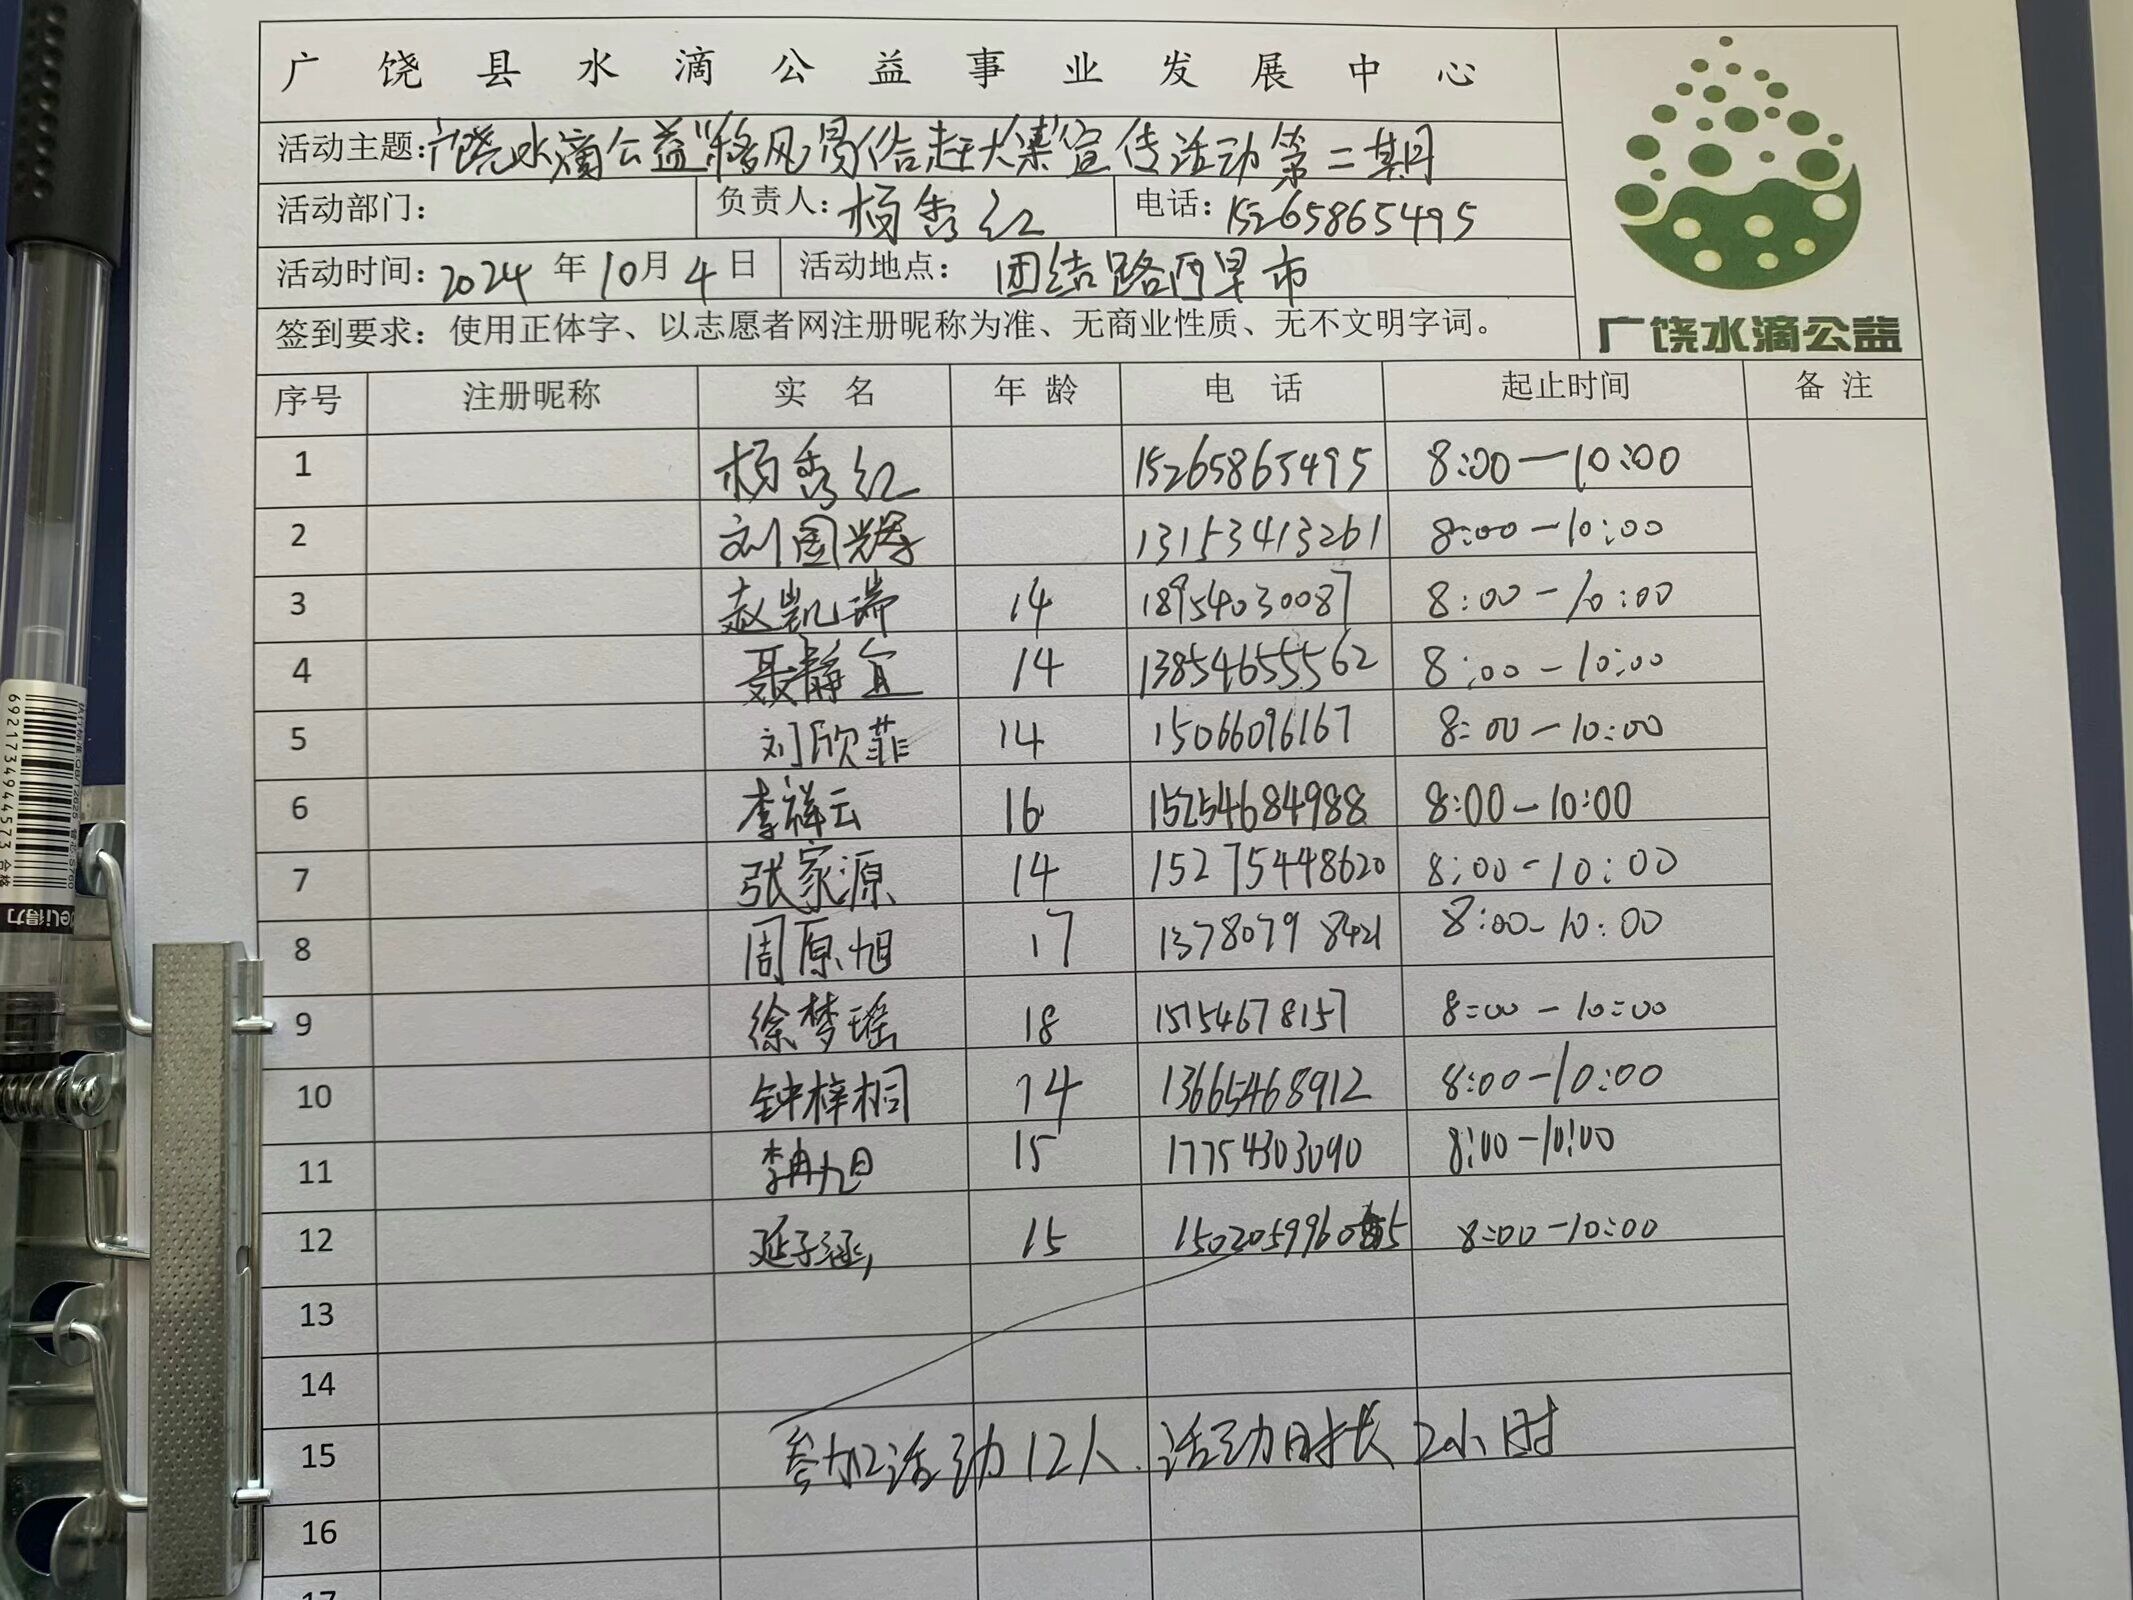 广饶县水滴公益事业发展中心
活动主题：广饶水滴公益"移风易俗赶大集"宣传活动第二期
活动部门： 负责人：杨秀红 电话：15265865495
活动时间：2024年10月4日 活动地点：团结路西早市
签到要求：使用正体字、以志愿者网注册昵称为准、无商业性质、无不文明字词。
广饶水滴公益
序号 注册昵称 实名 年龄 电话 起止时间 备注
1 杨秀红 15265865495 8:00—10:00
2 刘国辉 13153413261 8:00-10:00
3 赵凯瑞 14 18954030087 8:00-10:00
4 聂静宜 14 13854655562 8:00-10:00
5 刘欣菲 14 15066096167 8:00-10:00
6 李祥云 16 15254684988 8:00-10:00
7 张家源 14 15275448620 8:00-10:00
8 周原旭 17 13780798421 8:00-10:00
9 徐梦瑶 18 15154678157 8:00-10:00
10 钟梓桐 14 13665468912 8:00-10:00
11 李冉旭 15 17754303090 8:00-10:00
12 延子涵 15 8:00-10:00
13
14
15 参加活动12人.活动时长2小时
16
17
6921734944573 合格
deli得力